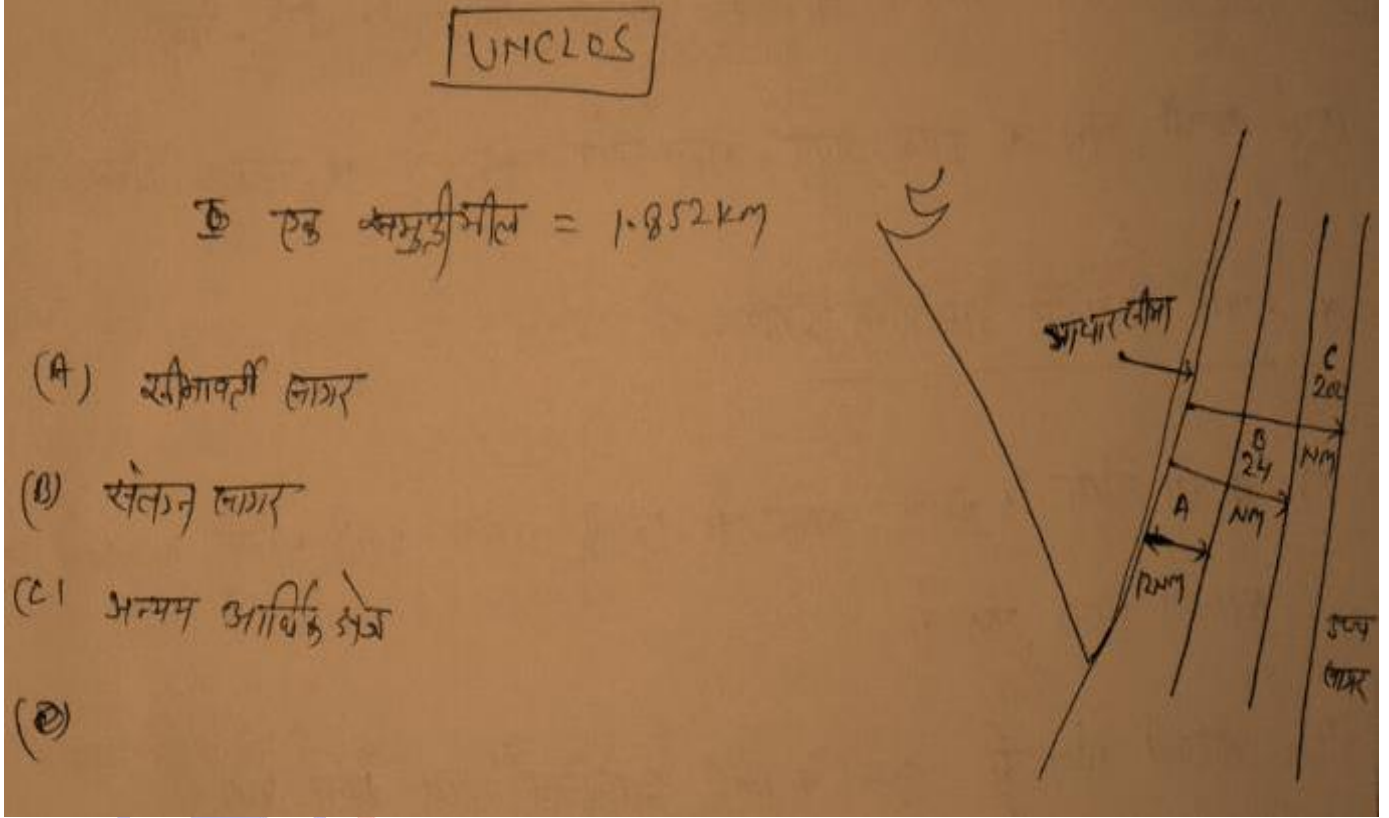 UNCLOS
एक समुद्रीमील = 1.852 km
(A) सीमावर्ती सागर
(B) संलग्न सागर
(C) अनन्य आर्थिक क्षेत्र
(D)
आधार सीमा
C
200
NM
B
24
NM
A
12NM
उच्च
सागर